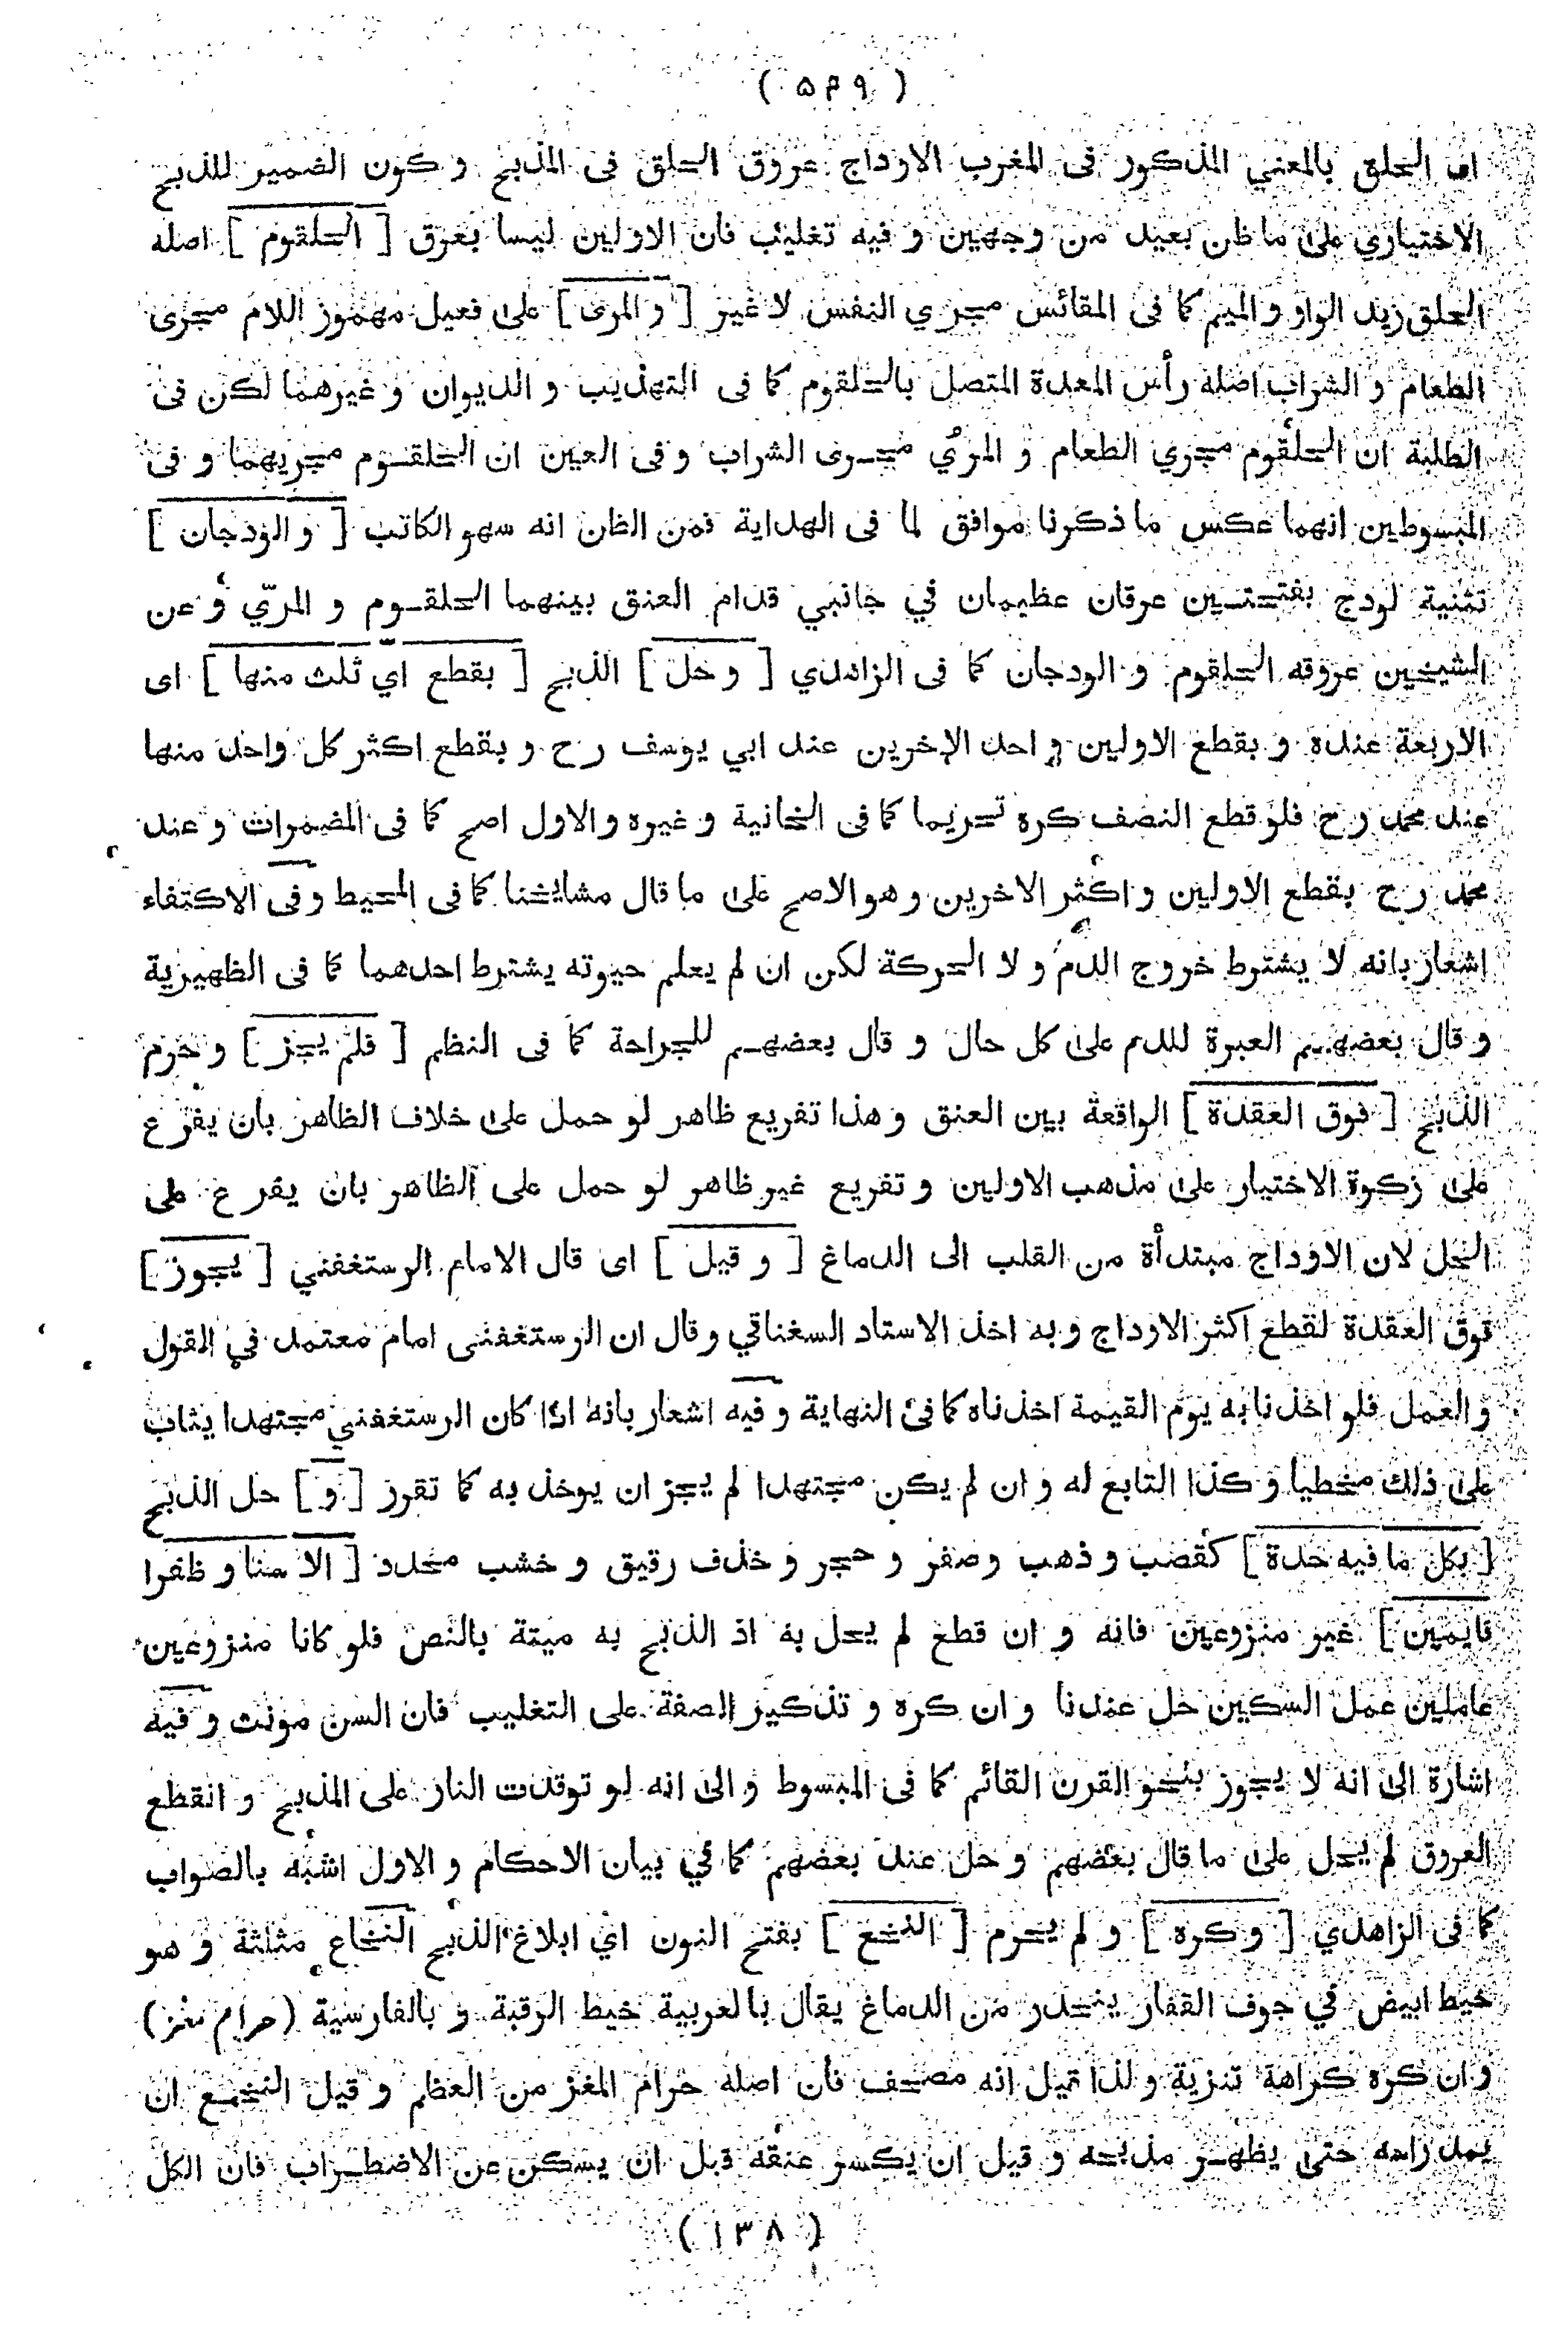 ( ۵۴۹ )
ای الحلق بالمعني المذكور فی المغرب الاوداج عروق الحلق فی المذبح و كون الضمير للذبح
الاختياري علی ما ظن بعيد من وجهين و فيه تغليب فان الاولين ليسا بعرق [ الحلقوم ] اصله
الحلق زيد الواو و الميم كما فی المقائس مجري النفس لا غير [ و المرئ ] علی فعيل مهموز اللام مجری
الطعام و الشراب اصله رأس المعدة المتصل بالحلقوم كما فی التهذيب و الديوان و غيرهما لكن فی
الطلبة ان الحلقوم مجري الطعام و المرئي مجری الشراب و فی العين ان الحلقوم مجريهما و فی
المبسوطين انهما عكس ما ذكرنا موافق لما فی الهداية فمن الظان انه سهو الكاتب [ و الودجان ]
تثنية لودج بفتحتين عرقان عظيمان في جانبي قدام العنق بينهما الحلقوم و المرّي و عن
الشيخين عروقه الحلقوم و الودجان كما فی الزاهدي [ و حل ] الذبح [ بقطع اي ثلث منها ] ای
الاربعة عنده و بقطع الاولين و احد الاخرين عند ابي يوسف رح و بقطع اكثر كل واحد منها
عند محمد رح فلو قطع النصف كره تحريما كما فی الخانية و غيره و الاول اصح كما فی المضمرات و عند
محمد رح بقطع الاولين و اكثر الاخرين و هو الاصح علی ما قال مشايخنا كما فی المحيط و فی الاكتفاء
اشعار بانه لا يشترط خروج الدم و لا الحركة لكن ان لم يعلم حيوته يشترط احدهما كما فی الظهيرية
و قال بعضهم العبرة للدم علی كل حال و قال بعضهم للجراحة كما فی النظم [ فلم يجز ] و حرم
الذبح [ فوق العقدة ] الواقعة بين العنق و هذا تفريع ظاهر لو حمل علی خلاف الظاهر بان يفرع
علی زكوة الاختيار علی مذهب الاولين و تفريع غير ظاهر لو حمل علی الظاهر بان يفرع علی
الحل لان الاوداج مبتدأة من القلب الی الدماغ [ و قيل ] ای قال الامام الرستغفني [ يجوز ]
فوق العقدة لقطع اكثر الاوداج و به اخذ الاستاد السغناقي و قال ان الرستغفنی امام معتمد في القول
و العمل فلو اخذنا به يوم القيمة اخذناه كما فی النهاية و فيه اشعار بانه اذا كان الرستغفني مجتهدا يثاب
علی ذلك مخطيا و كذا التابع له و ان لم يكن مجتهدا لم يجز ان يوخذ به كما تقرر [ و ] حل الذبح
[ بكل ما فيه حدة ] كقضب و ذهب و صفر و حجر و خذف رقيق و خشب محدد [ الا سنا و ظفرا
قايمين ] غير منزوعين فانه و ان قطع لم يحل به اذ الذبح به ميتة بالنص فلو كانا منزوعين
عاملين عمل السكين حل عندنا و ان كره و تذكير الصفة علی التغليب فان السن مونث و فيه
اشارة الی انه لا يجوز بنحو القرن القائم كما فی المبسوط و الی انه لو توقدت النار علی المذبح و انقطع
العروق لم يحل علی ما قال بعضهم و حل عند بعضهم كما في بيان الاحكام و الاول اشبه بالصواب
كما فی الزاهدي [ و كره ] و لم يحرم [ النخع ] بفتح النون اي ابلاغ الذبح النخاع مثلثة و هو
خيط ابيض في جوف القفار ينحدر من الدماغ يقال بالعربية خيط الرقبة و بالفارسية (حرام مغز)
و ان كره كراهة تنزية و لذا قيل انه مصحف فان اصله حرام المغز من العظم و قيل النخع ان
يمد راسه حتی يظهر مذبحه و قيل ان يكسر عنقه قبل ان يسكن عن الاضطراب فان الكل
( ۱۳۸ )